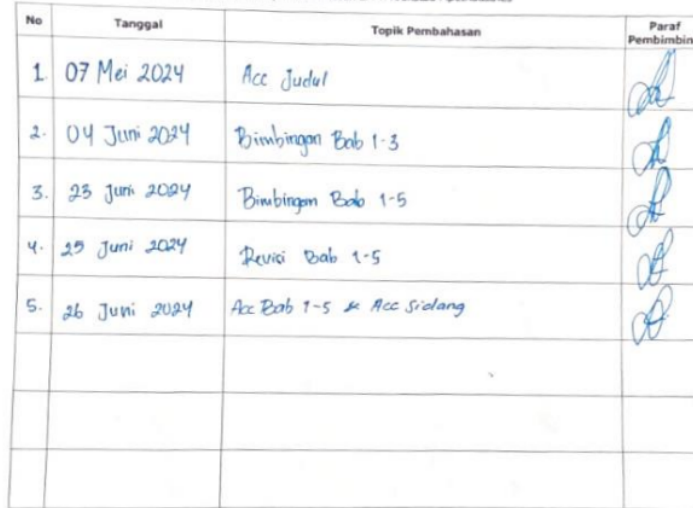 No Tanggal Topik Pembahasan Paraf
Pembimbin
1. 07 Mei 2024 Acc Judul
2. 04 Juni 2024 Bimbingan Bab 1-3
3. 23 Juni 2024 Bimbingan Bab 1-5
4. 25 Juni 2024 Revisi Bab 1-5
5. 26 Juni 2024 Acc Bab 1-5 & Acc Sidang